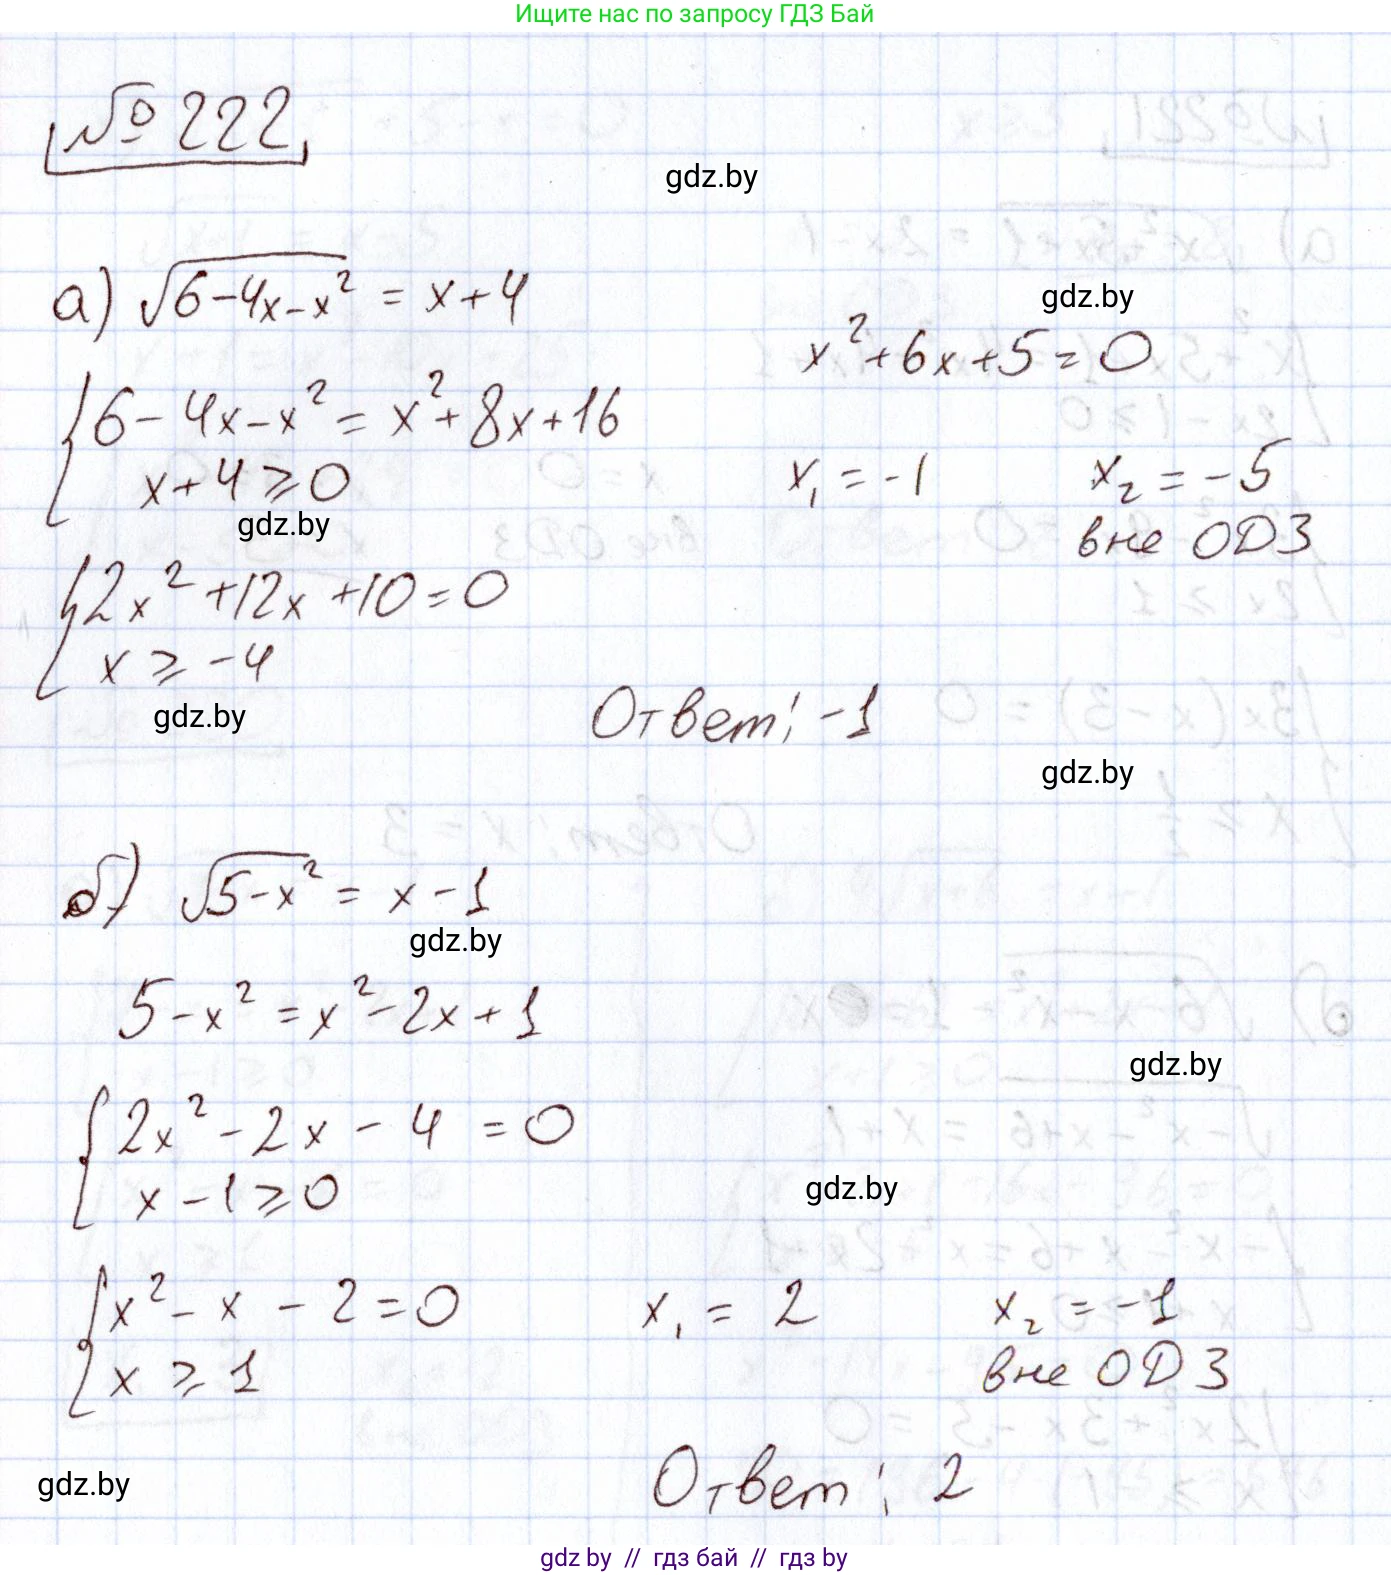 Ищите нас по запросу ГДЗ Бай
№ 222
gdz.by
а) √(6-4x-x²) = x+4
gdz.by
x²+6x+5=0
{6-4x-x² = x²+8x+16
x+4⩾0
x₁ = -1
x₂ = -5
gdz.by
вне ОДЗ
{2x²+12x+10=0
x ⩾ -4
gdz.by
Ответ: -1
gdz.by
б) √(5-x²) = x-1
gdz.by
5-x² = x²-2x+1
gdz.by
{2x²-2x-4 = 0
x-1⩾0
gdz.by
{x²-x-2=0
x₁ = 2
x₂ = -1
x ⩾ 1
вне ОДЗ
gdz.by
Ответ: 2
gdz by // гдз бай // гдз by